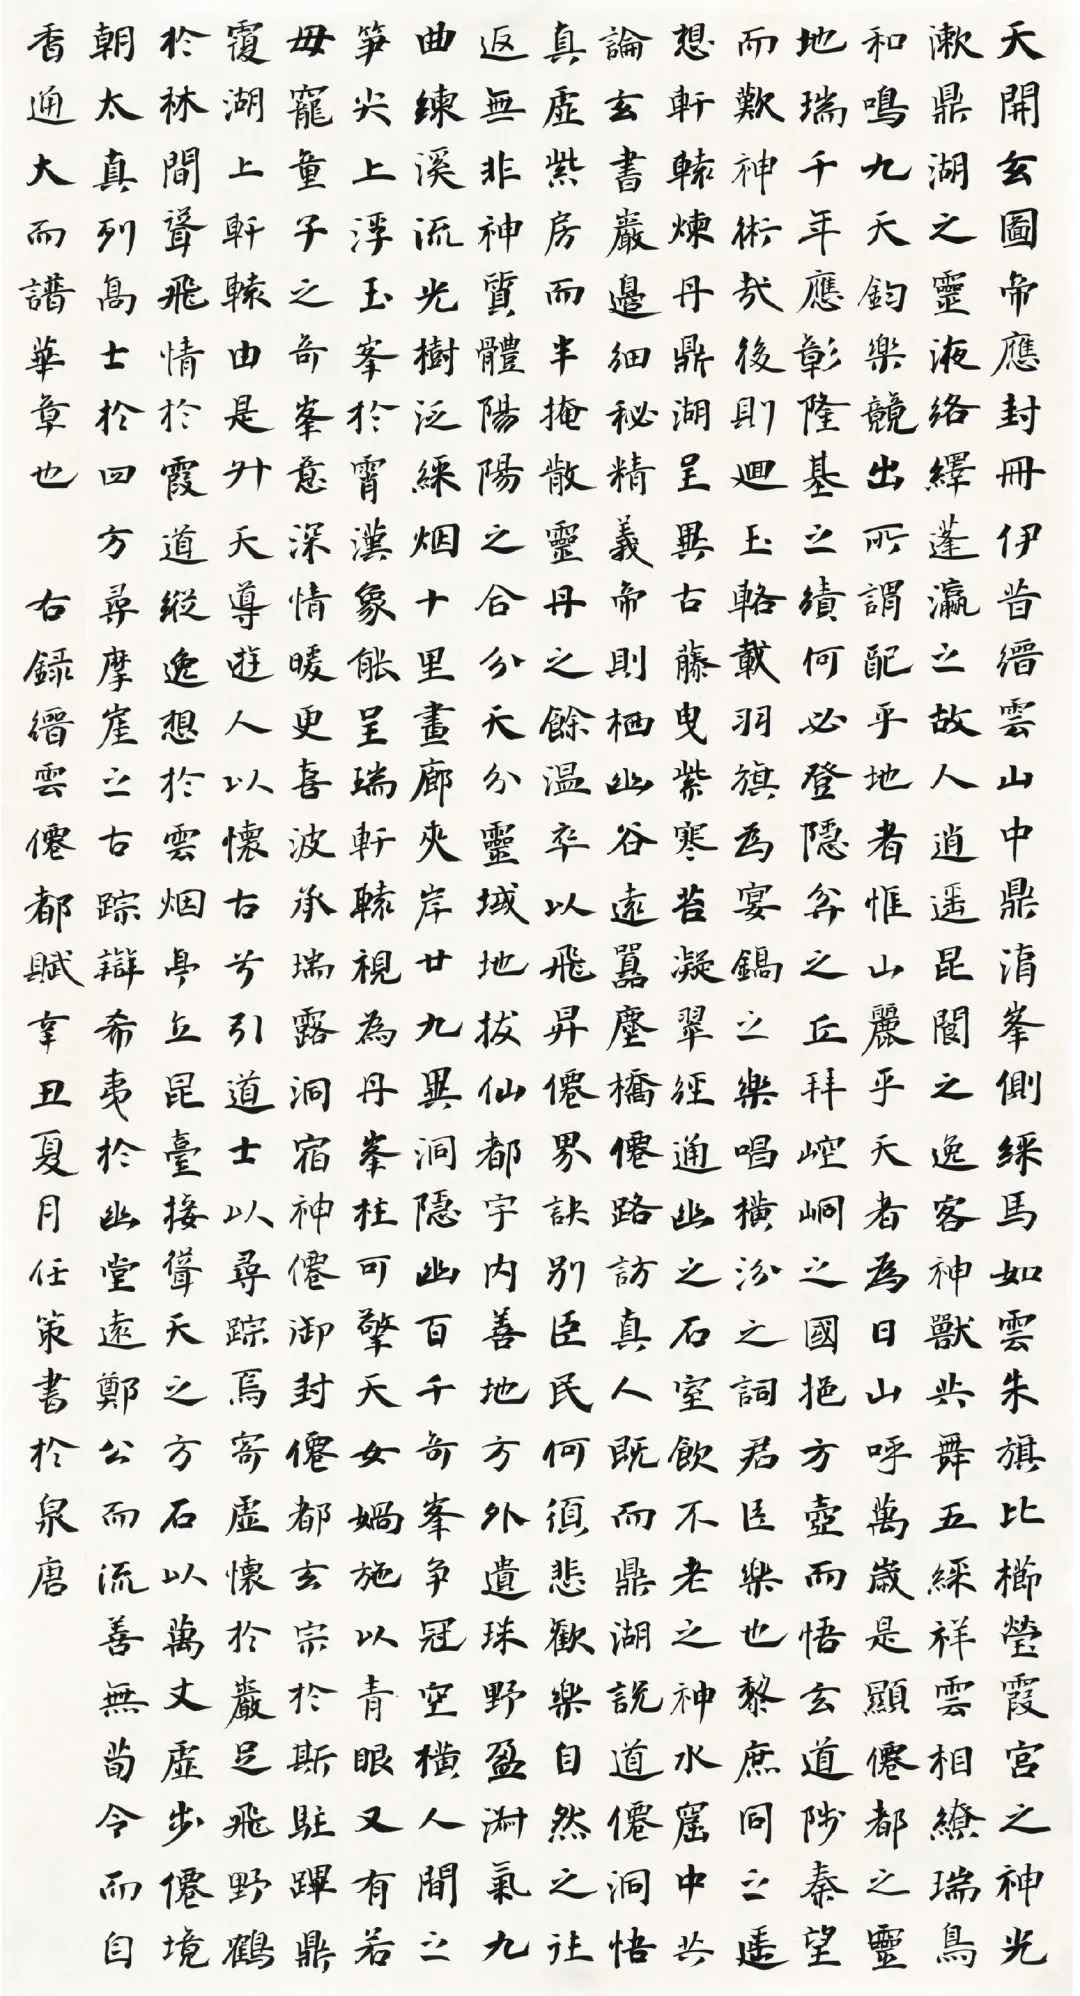 天開玄圖帝應封冊伊昔縉雲山中鼎湏峯側綵馬如雲朱旗比櫛瑩霞宮之神光
漱鼎湖之靈液絡繹蓬瀛之故人逍遥昆閬之逸客神獸共舞五綵祥雲相繚瑞鳥
和鳴九天鈞樂競出所謂配乎地者惟山麗乎天者為日山呼萬歲是顯僊都之靈
地瑞千年應彰隆基之績何必登隱弅之丘拜崆峒之國挹方壺而悟玄道陟秦望
而歎神術哉後則迴玉輅載羽旗為宴鎬之樂唱橫汾之詞君臣樂也黎庶同之遥
想軒轅煉丹鼎湖呈異古藤曳紫寒苔凝翠徑通幽之石室飲不老之神水窟中共
論玄書巖邊細秘精義帝則栖幽谷遠囂塵橋僊路訪真人既而鼎湖說道僊洞悟
真虛紫房而半掩散靈丹之餘温卒以飛昇僊界訣別臣民何須悲歡樂自然之註
返無非神質體陽陽之合分天分靈域地拔仙都宇內善地方外遺珠野盈淋氣九
曲練溪流光樹泛綵烟十里畫廊夾岸廿九異洞隱幽百千奇峯爭冠空橫人間之
筍尖上浮玉峯於霄漢象能呈瑞軒轅視為丹峯柱可擎天女媧施以青眼又有若
毋寵童子之奇峯意深情暖更喜波承瑞露洞宿神僊御封僊都玄宗於斯駐蹕鼎
覆湖上軒轅由是升天導遊人以懷古兮引道士以尋踪焉寄虛懷於巖足飛野鶴
於林間聳飛情於霞道縱逸想於雲烟亭立昆臺接聳天之方石以萬丈虛步僊境
朝太真列高士於四方尋摩崖之古踪辯希夷於幽堂遠鄭公而流善無荀令而自
香通大而譜華章也　右錄縉雲僊都賦辛丑夏月任策書於泉唐